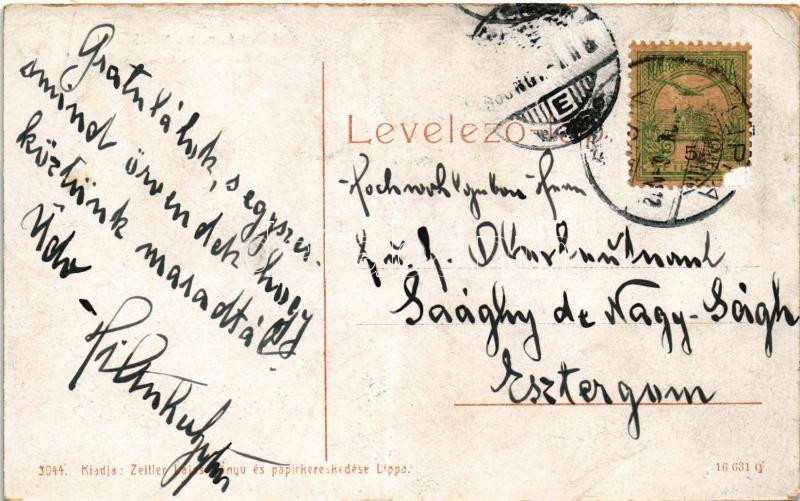 Gratulálok, s egyszer-
smind örvendek hogy
köztünk maradtál
Üdv
Levelező-Lap
Hochwohlgeboren Herrn
k. u. k. Oberleutnant
Saághy de Nagy-Ságh
Esztergom
3044. Kiadja: Zeitler Lajos könyv és papirkereskedése Lippa.
16 631 Q